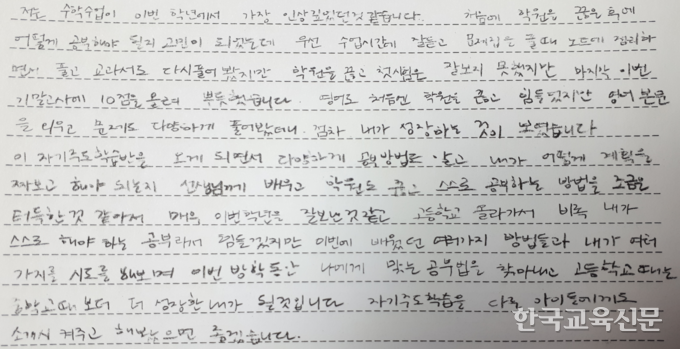 저는 수학수업이 이번 학년에서 가장 인상깊었던것 같습니다. 처음에 학원을 끊을 때
어떻게 공부해야 될지 고민이 되었는데 우선 수업시간에 잘듣고 문제집을 풀때 노트에 정리하
면서 풀고 교과서도 다시풀어 봤지만 학원을 끊고 첫시험은 잘보지 못했지만 마지막 이번
기말고사에 10점을 올려 뿌듯했습니다. 영어도 처음엔 학원을 끊고 힘들었지만 영어 본문
을 외우고 문제도 다양하게 풀어봤더니 점차 내가 성장하는 것이 보였습니다
이 자기주도학습반을 오게 되면서 다양하게 공부방법도 알고 내가 어떻게 계획을
짜보고 해야 되는지 선생님께 배우고 학원도 끊고 스스로 공부하는 방법을 조금은
터득한것 같아서 매우 이번학년을 잘보낸것 같고 고등학교 올라가서 비록 내가
스스로 해야 하는 공부라서 힘들겠지만 이번에 배웠던 여러가지 방법들과 내가 여러
가지를 시도를 해보며 이번 방학동안 나에게 맞는 공부법을 찾아내고 고등학교때는
중학교때 보다 더 성장한 내가 될것입니다 자기주도학습을 다른 아이들에게도
소개시켜주고 해봤으면 좋겠습니다.
한국교육신문